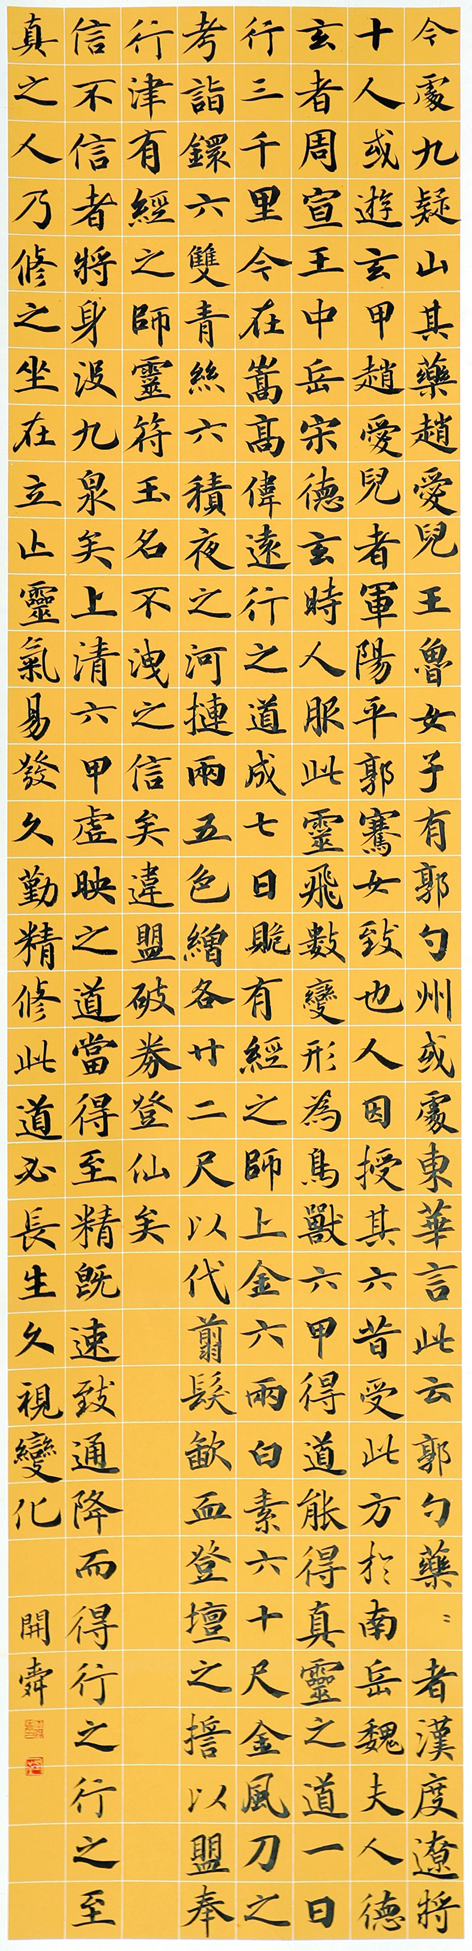 今處九疑山其藥趙愛兒王魯女子有郭勺州或處東華言此云郭勺藥〻者漢度遼將
十人或遊玄甲趙愛兒者軍陽平郭騫女致也人因授其六昔受此方於南岳魏夫人德
玄者周宣王中岳宋德玄時人服此靈飛數變形為鳥獸六甲得道能得真靈之道一日
行三千里今在嵩高偉遠行之道成七日貤有經之師上金六兩白素六十尺金風刀之
考詣鐶六雙青絲六積夜之河摙兩五色繒各廿二尺以代翦髮歃血登壇之誓以盟奉
行津有經之師靈符玉名不洩之信矣違盟破券登仙矣
信不信者將身没九泉矣上清六甲虛映之道當得至精既速致通降而得行之行之至
真之人乃修之坐在立止靈氣易發久勤精修此道必長生久視變化
開舜